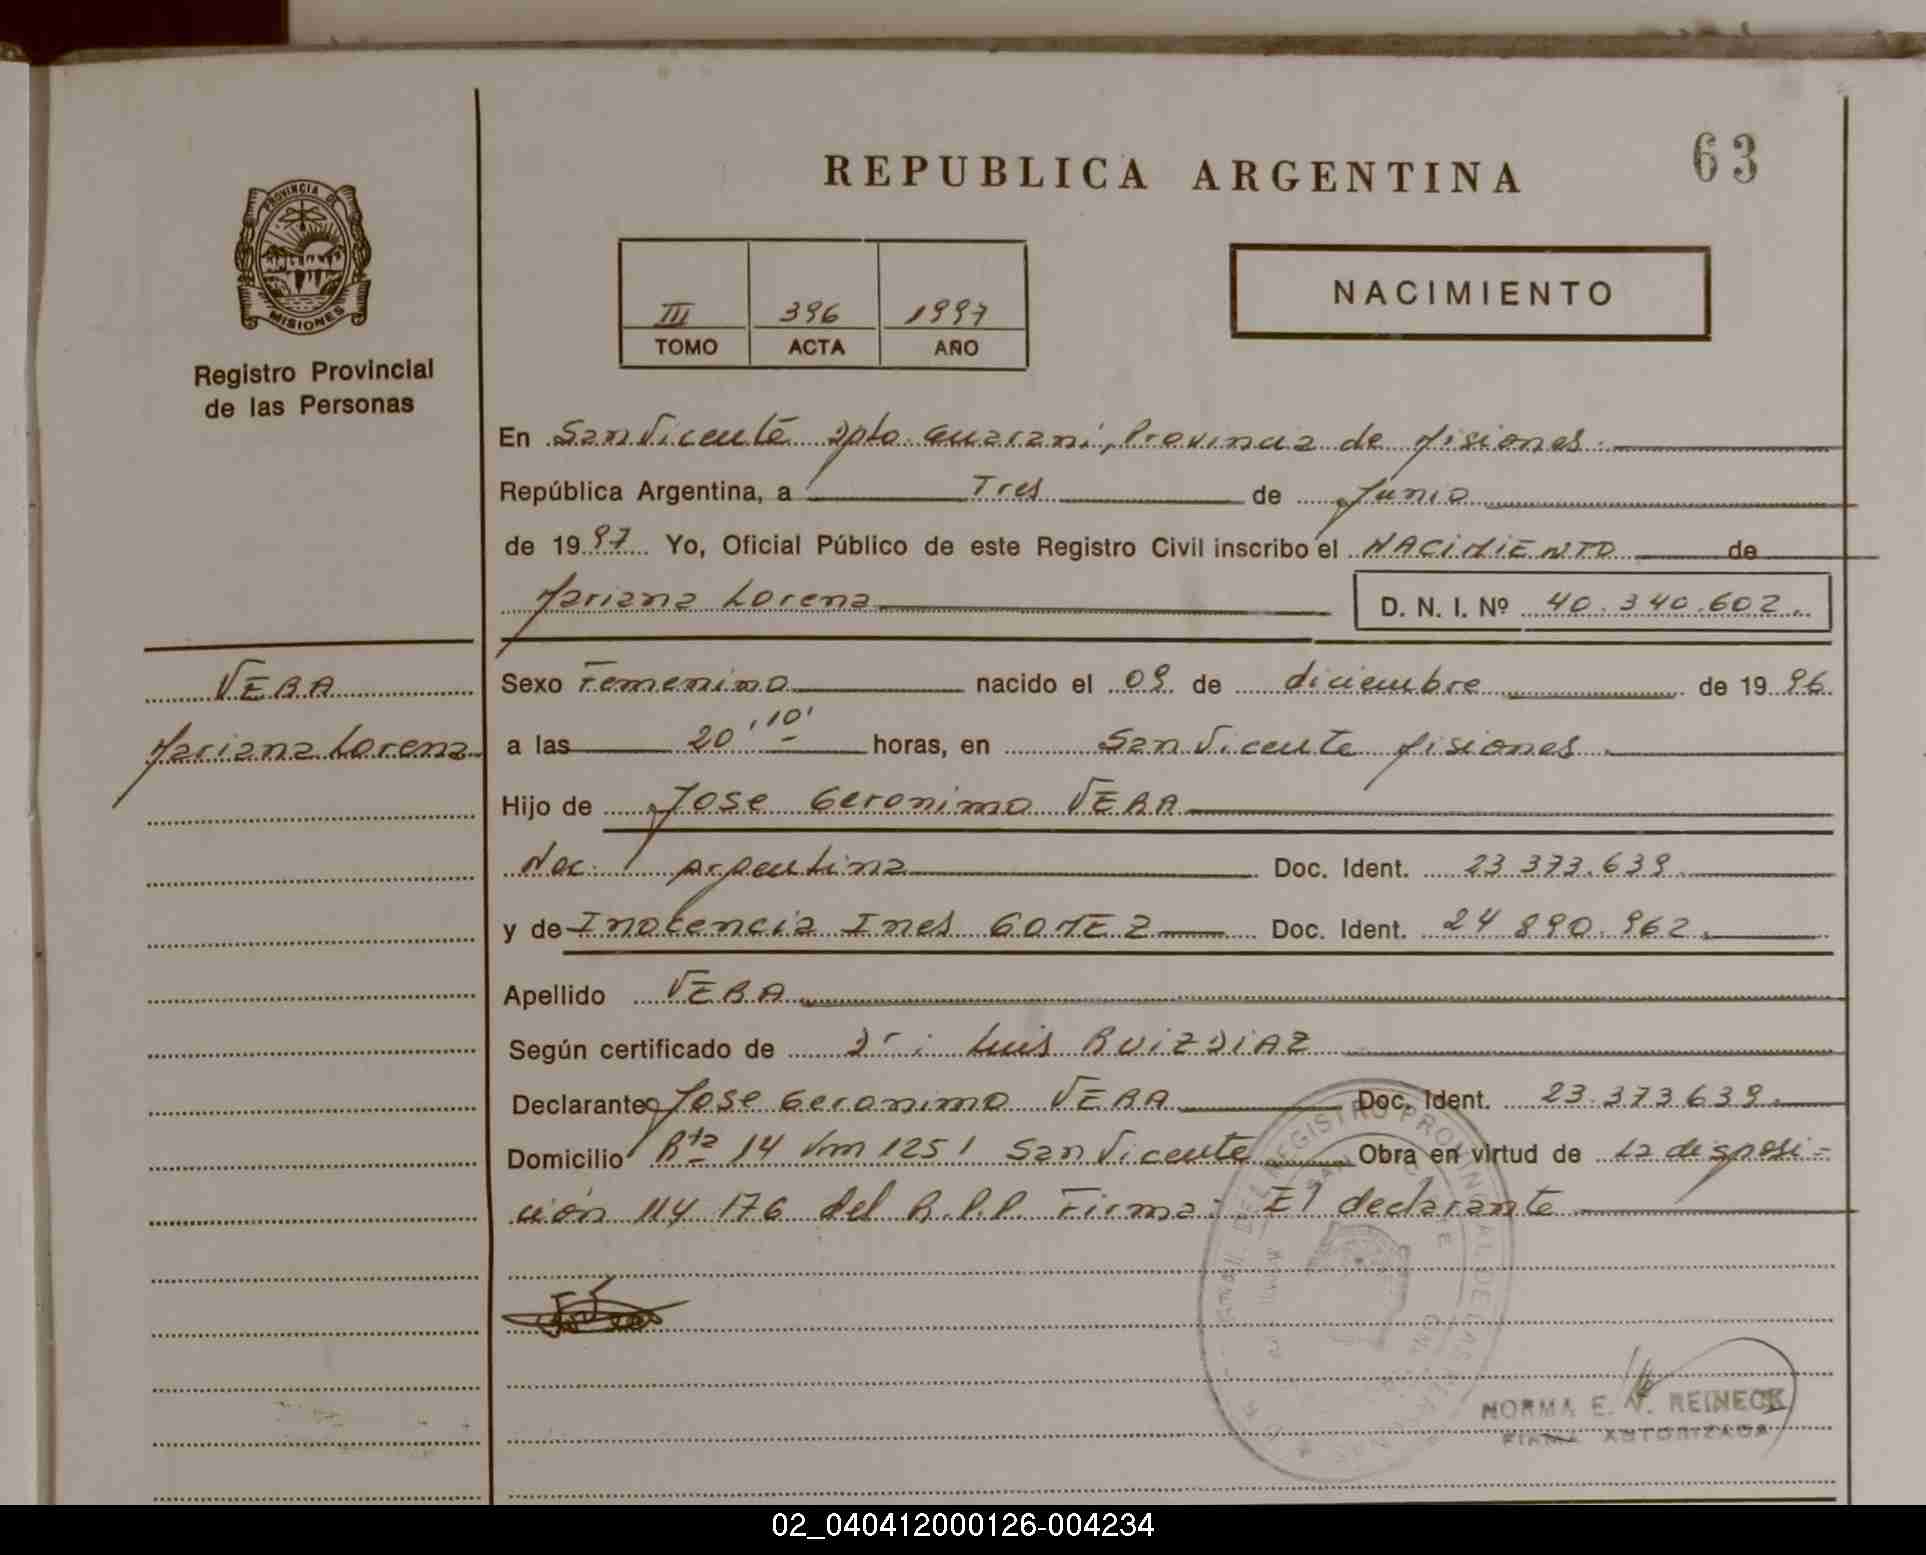 REPUBLICA ARGENTINA
63
PROVINCIA DE
MISIONES
Registro Provincial
de las Personas
III 396 1997
TOMO ACTA AÑO
NACIMIENTO
En San Vicente Dpto. Guarani, Provincia de Misiones.
República Argentina, a Tres de Junio
de 1997 Yo, Oficial Público de este Registro Civil inscribo el NACIMIENTO de
Mariana Lorena D. N. I. Nº 40.340.602.
VERA
Mariana Lorena
Sexo Femenino nacido el 09 de diciembre de 1996
a las 20,10' horas, en San Vicente Misiones.
Hijo de Jose Geronimo VERA
Nac. Argentina Doc. Ident. 23.373.639.
y de Inocencia Ines GOMEZ Doc. Ident. 24.890.962.
Apellido VERA
Según certificado de Dr: Luis RUIZ DIAZ
Declarante Jose Geronimo VERA Doc. Ident. 23.373.639.
Domicilio Rta 14 km 1251 San Vicente Obra en virtud de la disposi-
ción 114/176 del R.P.P. Firma: El declarante
REGISTRO PROVINCIAL DE LAS PERSONAS
NORMA E. V. REINECK
FIRMA AUTORIZADA
02_040412000126-004234